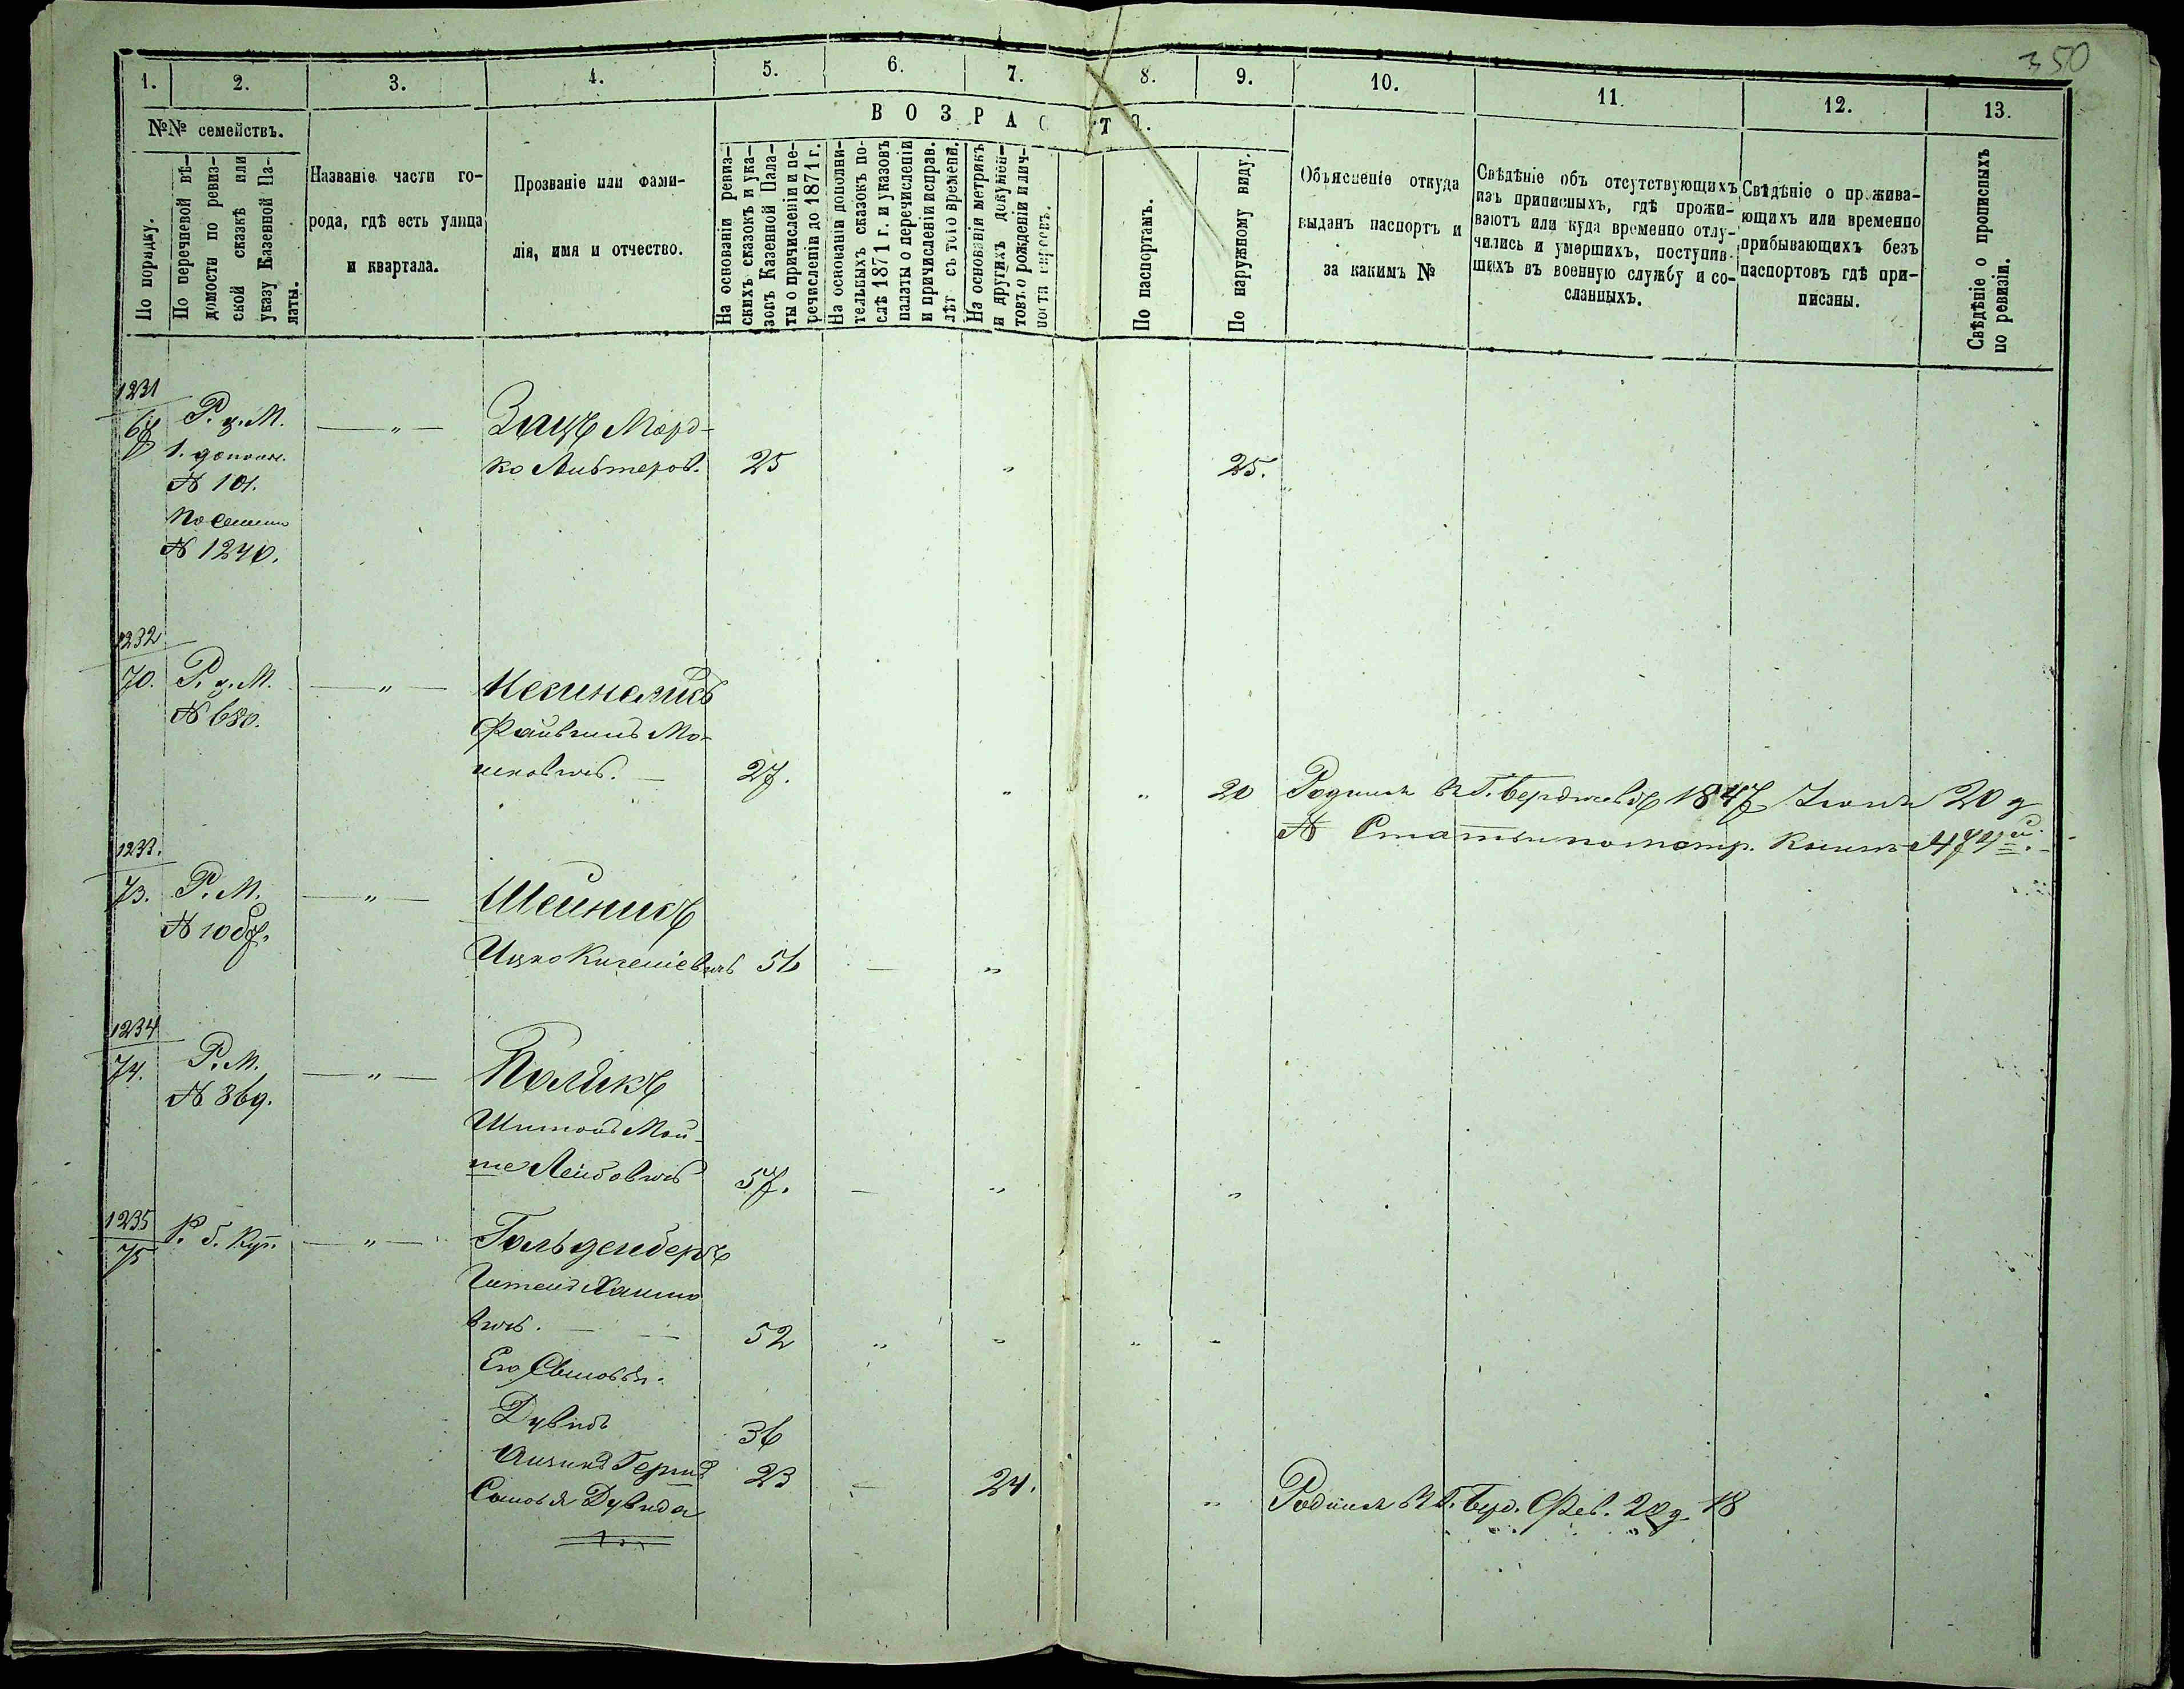 350
1. 2. 3. 4. 5. 6. 7. 8. 9. 10. 11. 12. 13.
№№ семействъ.
ВОЗРАСТЪ.
По порядку.
По перечневой вѣ-
домости по ревиз-
ской сказкѣ или
указу Казенной Па-
латы.
Названіе части го-
рода, гдѣ есть улица
и квартала.
Прозваніе или фами-
лія, имя и отчество.
На основаніи ревиз-
скихъ сказокъ и ука-
зовъ Казенной Пала-
ты о причисленіи и пе-
речисленіи до 1871 г.
На основаніи дополни-
тельныхъ сказокъ по-
слѣ 1871 г. и указовъ
палаты о перечисленіи
и причисленіи исправ.
лѣт съ того времени.
На основаніи метрикъ
и другихъ докумен-
товъ о рожденіи и лич-
ности евреевъ.
По паспортамъ.
По наружному виду.
Объясненіе откуда
выданъ паспортъ и
за какимъ №
Свѣдѣніе объ отсутствующихъ
изъ приписныхъ, гдѣ прожи-
ваютъ или куда временно отлу-
чились и умершихъ, поступив-
шихъ въ военную службу и со-
сланныхъ.
Свѣдѣніе о прожива-
ющихъ или временно
прибывающихъ безъ
паспортовъ гдѣ при-
писаны.
Свѣдѣніе о прописныхъ
по ревизіи.
1231
Р. д. М. — „ — ЗаицъМорд-
1. дополн. ко 25 „ 25.
№ 101.
№ 1240.
1232
70. Р. д. М. — „ —
№ 680. Файвишъ Мо-
шковичъ. — 27. „ „ 20 Родился въ Г. Бердичевѣ 1847 Іюня 20 д
№ Статьи по метр. книгѣ 474й.
1233.
73. Р. М. — „ — Шейникъ
Ицко 56 — „
1234
74. Р. М. — „ — Поликъ
№ 369.
Шимонъ Мой-
ше Лейбовичъ 57. — „ „
1235
75 Р. б. Куп. — „ — Гольденберъ
Хаимо
вичъ. — — 52 „ „ „ „
Его Сыновья.
Дувидъ 36
Гершъ 23 — 24. „ Родился въ Г. Берд. Фев. 20 д. 18
Сыновья Дувида